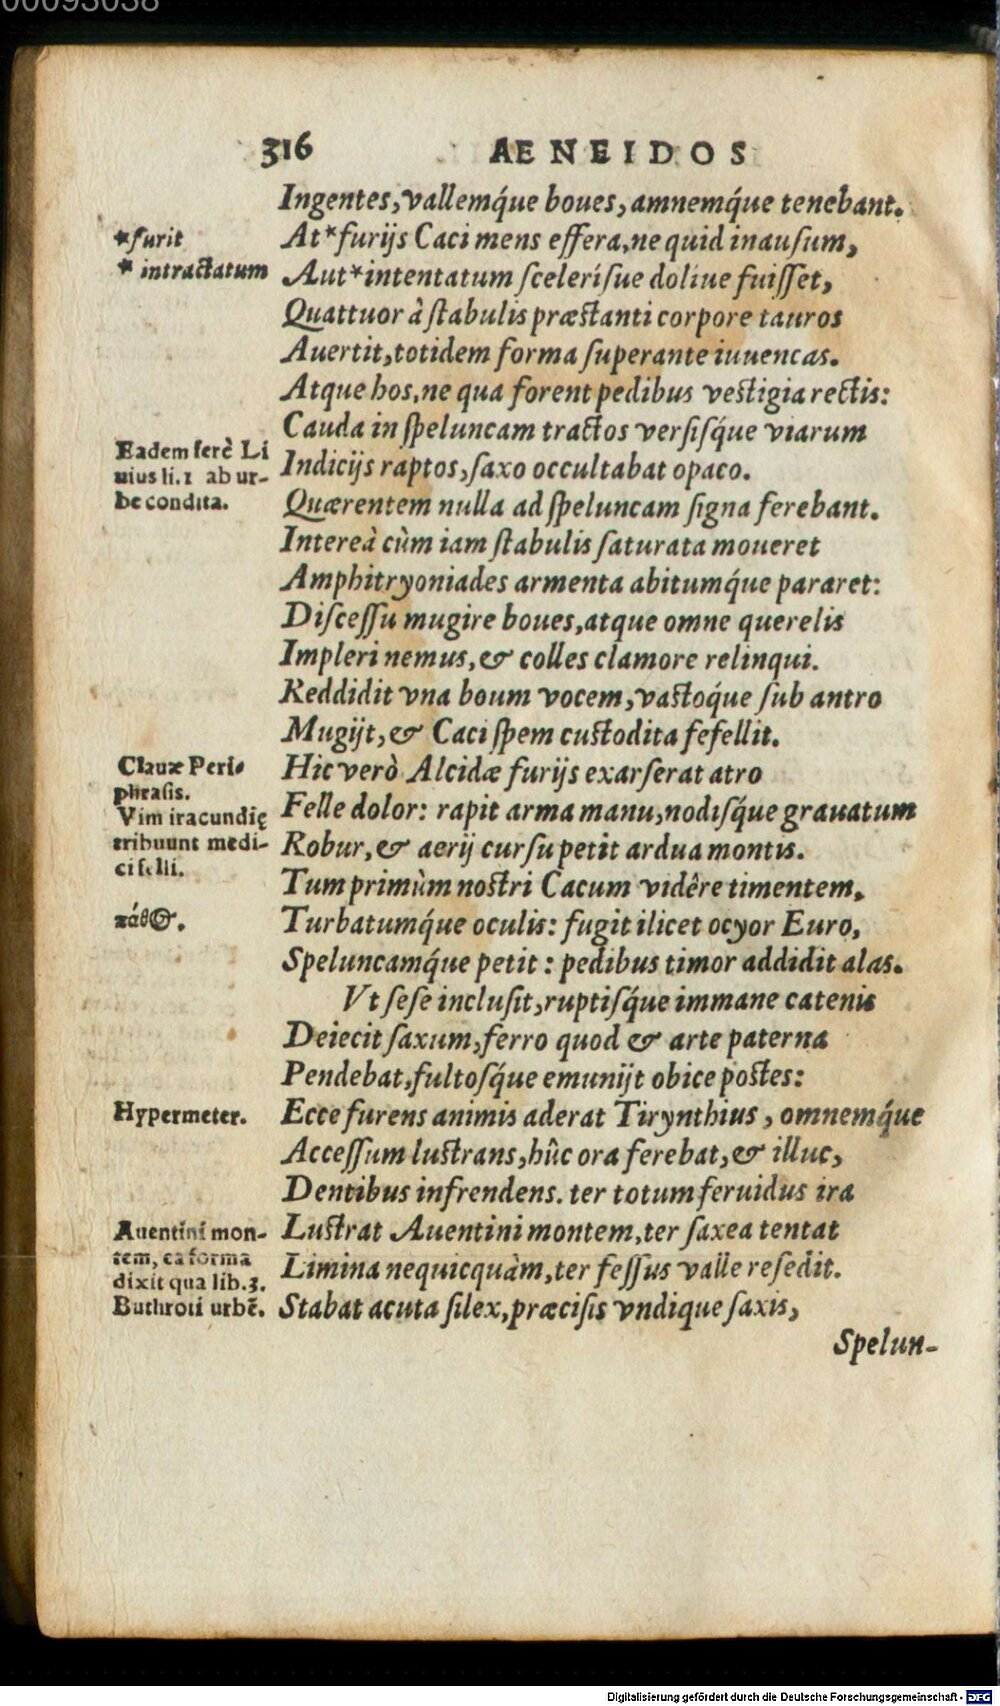 00093038
316 AENEIDOS
Ingentes, vallemq́ue boues, amnemq́ue tenebant.
*furit
At *furijs Caci mens effera, ne quid inausum,
* intractatum
Aut *intentatum scelerísue doliue fuisset,
Quattuor à stabulis præstanti corpore tauros
Auertit, totidem forma superante iuuencas.
Atque hos, ne qua forent pedibus vestigia rectis:
Cauda in speluncam tractos versisq́ue viarum
Eadem ferè Li
uius li.1 ab ur-
be condita.
Indicijs raptos, saxo occultabat opaco.
Quærentem nulla ad speluncam signa ferebant.
Intereà cùm iam stabulis saturata moueret
Amphitryoniades armenta abitumq́ue pararet:
Discessu mugire boues, atque omne querelis
Impleri nemus, & colles clamore relinqui.
Reddidit vna boum vocem, vastoq́ue sub antro
Mugijt, & Caci spem custodita fefellit.
Clauæ Peri-
phrasis.
Hic verò Alcidæ furijs exarserat atro
Vim iracundię
tribuunt medi-
ci felli.
Felle dolor: rapit arma manu, nodisq́ue grauatum
Robur, & aerij cursu petit ardua montis.
Tum primùm nostri Cacum vidêre timentem,
πάθ⊙.
Turbatumq́ue oculis: fugit ilicet ocyor Euro,
Speluncamq́ue petit: pedibus timor addidit alas.
Vt sese inclusit, ruptisq́ue immane catenis
Deiecit saxum, ferro quod & arte paterna
Pendebat, fultosq́ue emunijt obice postes:
Hypermeter.
Ecce furens animis aderat Tirynthius, omnemq́ue
Accessum lustrans, hûc ora ferebat, & illuc,
Dentibus infrendens. ter totum feruidus ira
Auentini mon-
tem, ea forma
dixit qua lib.3.
Buthroti urbē.
Lustrat Auentini montem, ter saxea tentat
Limina nequicquàm, ter fessus valle resedit.
Stabat acuta silex, præcisis vndique saxis,
Spelun-
Digitalisierung gefördert durch die Deutsche Forschungsgemeinschaft - DFG